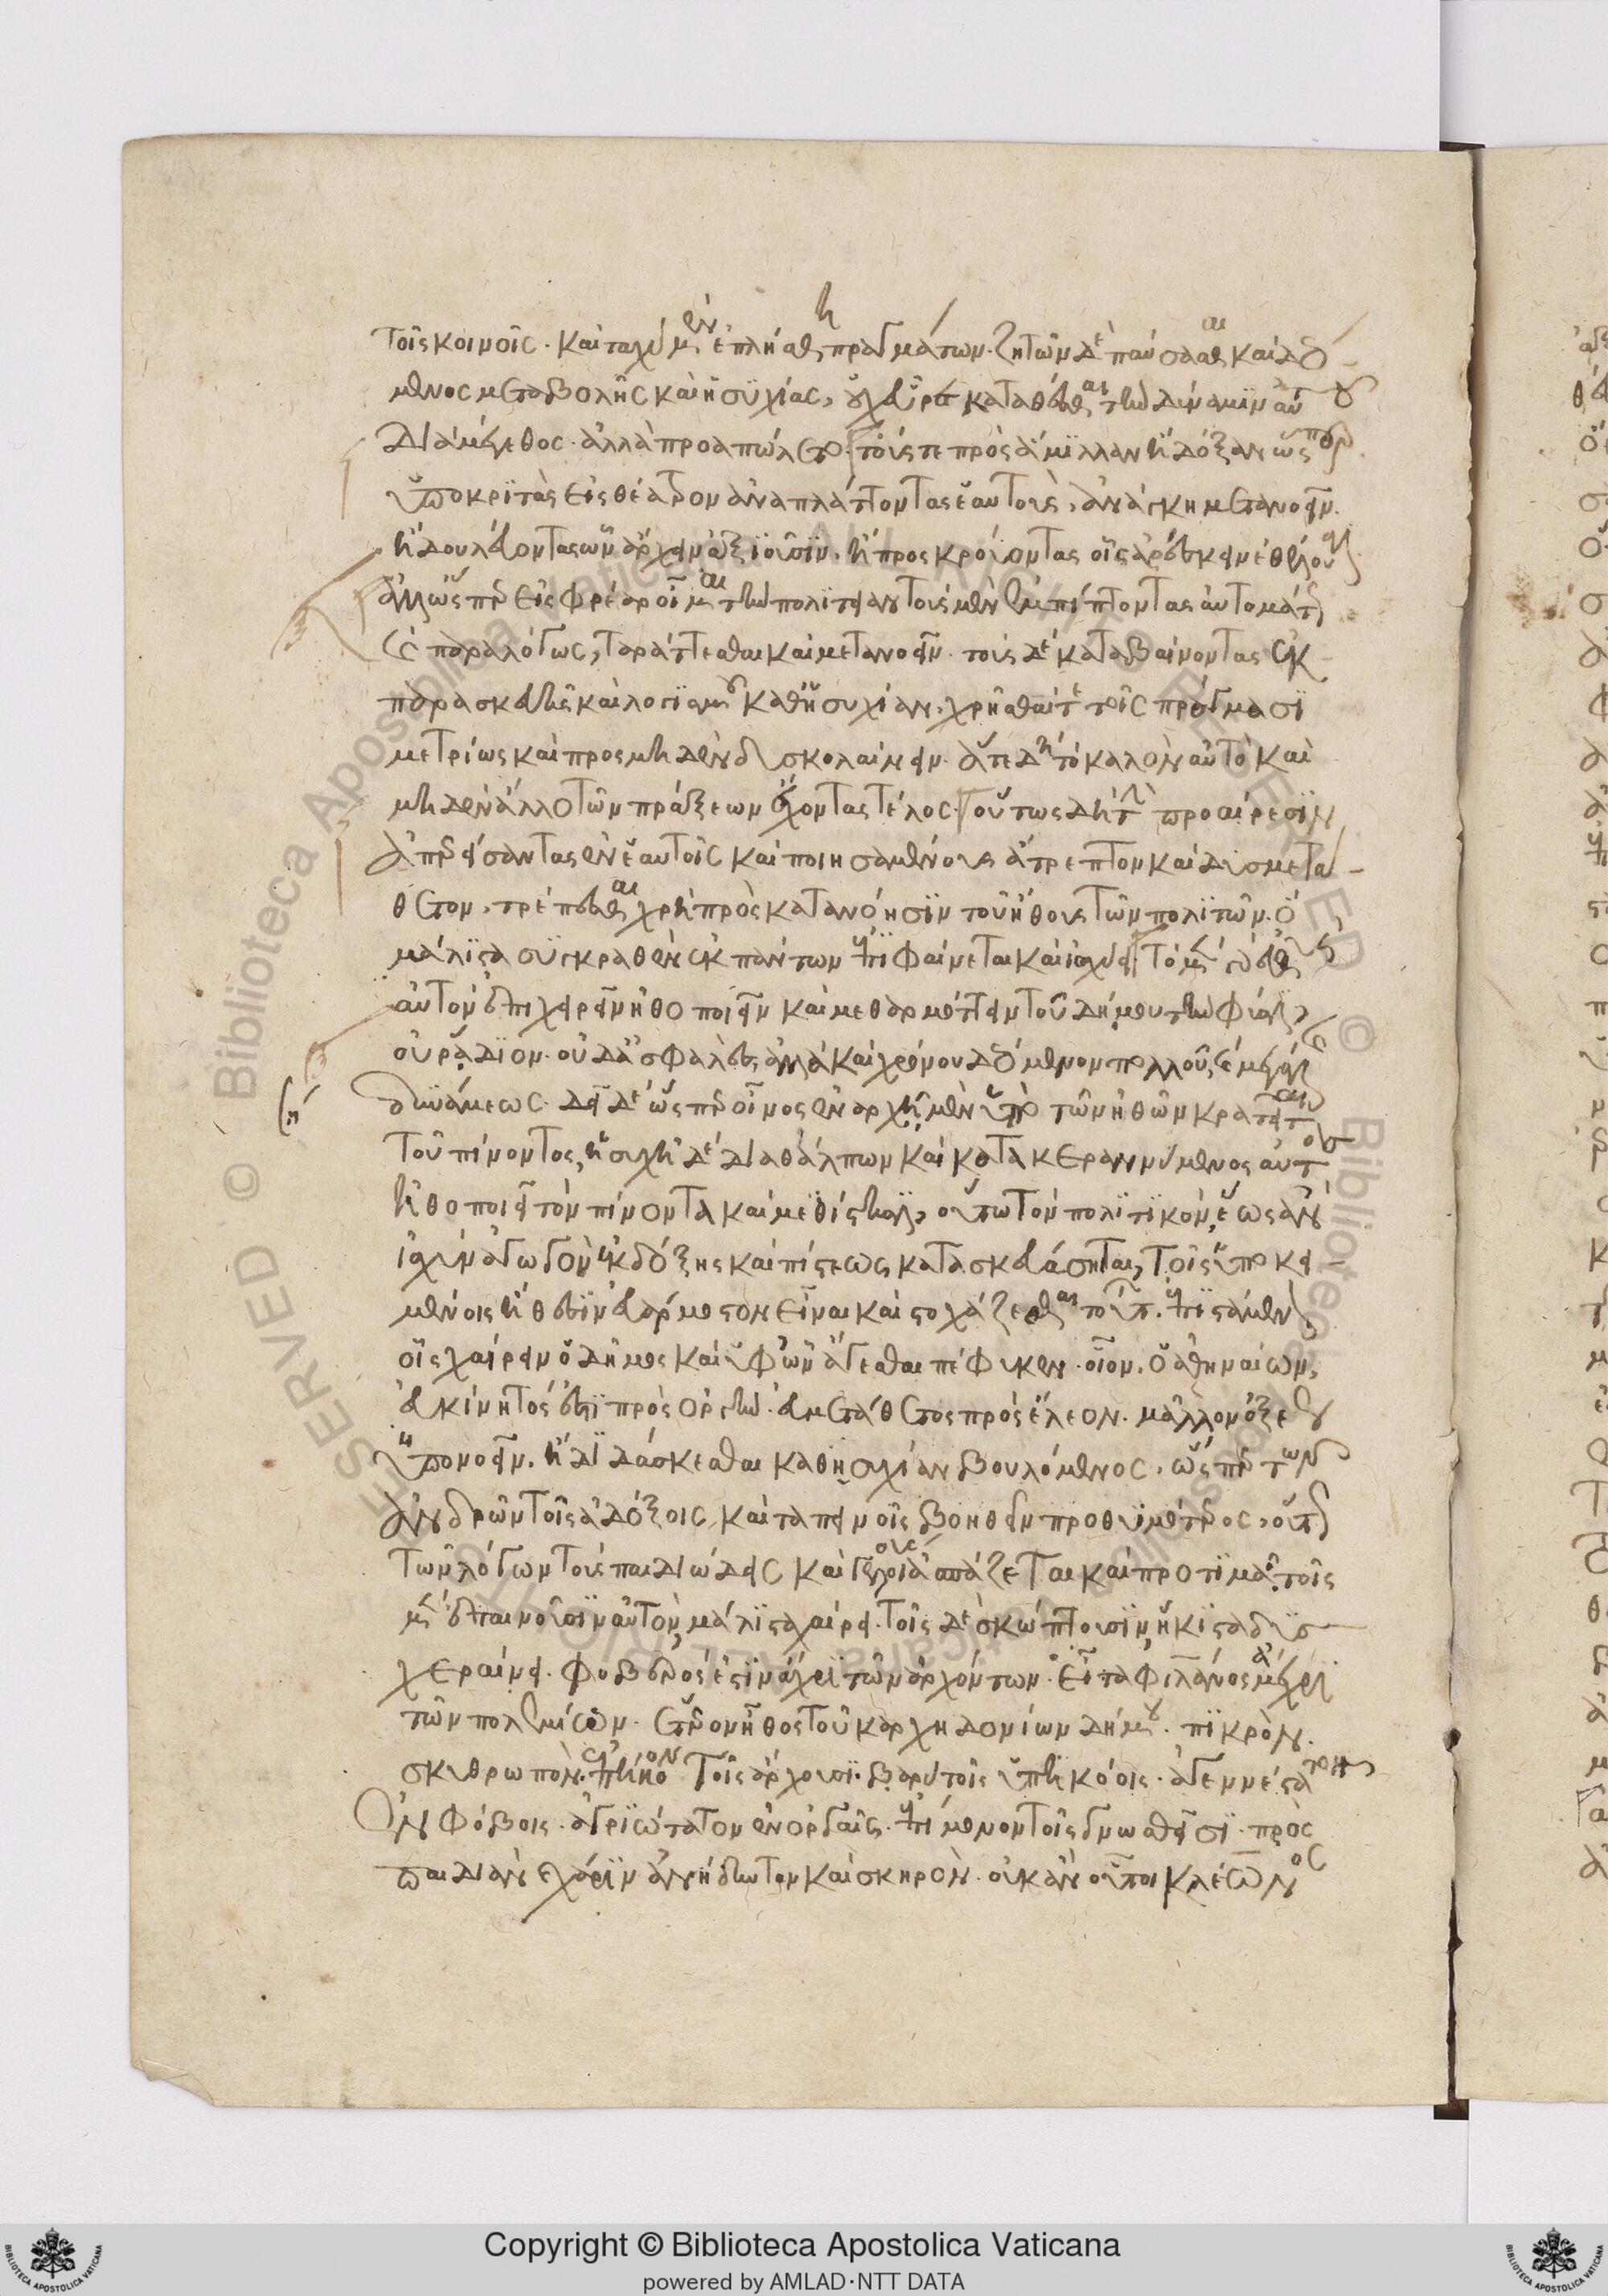 τοῖς κοινοῖς. καὶ ταχὺ μὲν ἐπλήσθη πραγμάτων. ζητῶν δὲ παύσασθαι καὶ δεό-
μενος μεταβολῆς καὶ ἡσυχίας, οὐχ εὗρε καταθέσθαι τὴν δύναμιν αὐτοῦ
διὰ μέγεθος. ἀλλὰ προαπώλετο. τούς τε πρὸς ἅμιλλαν ἢ δόξαν ὥσπερ
ὑποκριτὰς εἰς θέατρον ἀναπλάττοντας ἑαυτούς, ἀνάγκη μετανοεῖν.
ἢ δουλεύοντας ὧν ἄρχειν ἀξιοῦσιν. ἢ προσκρούοντας οἷς ἀρέσκειν ἐθέλουσιν.
ἀλλ ὥσπερ εἰς φρέαρ οἶμαι τὴν πολιτείαν τοὺς μὲν ἐμπίπτοντας αὐτομάτως
καὶ παραλόγως, ταράττεσθαι καὶ μετανοεῖν. τοὺς δὲ καταβαίνοντας ἐκ
παρασκευῆς καὶ λογισμοῦ καθ ἡσυχίαν, χρῆσθαί τε τοῖς πράγμασι
μετρίως καὶ πρὸς μηδὲν δυσκολαίνειν. ἅτε δὴ τὸ καλὸν αὐτὸ καὶ
μηδὲν ἄλλο τῶν πράξεων ἔχοντας τέλος. οὕτως δὴ τὴν προαίρεσιν
ἀπερείσαντας ἐν ἑαυτοῖς καὶ ποιησαμένους ἄτρεπτον καὶ δυσμετά-
θετον, τρέπεσθαι χρὴ πρὸς κατανόησιν τοῦ ἤθους τῶν πολιτῶν. ὃ
μάλιστα συγκραθὲν ἐκ πάντων ἐπιφαίνεται καὶ ἰσχύει. τὸ μὲν εὐθὺς
αὐτὸν ἐπιχειρεῖν ἠθοποιεῖν καὶ μεθαρμόττειν τοῦ δήμου τὴν φύσιν,
οὐ ῥᾴδιον. οὐδ ἀσφαλές, ἀλλὰ καὶ χρόνου δεόμενον πολλοῦ καὶ μεγάλης
δυνάμεως. δεῖ δέ, ὥσπερ οἶνος ἐν ἀρχῇ μὲν ὑπὸ τῶν ἠθῶν κρατεῖται
τοῦ πίνοντος, ἡσυχῆ δὲ διαθάλπων καὶ κατακεραννύμενος αὐτὸς
ἠθοποιεῖ τὸν πίνοντα καὶ μεθίστησιν, οὕτω τὸν πολιτικὸν, ἕως ἂν
ἰσχὺν ἀγωγὸν ἐκ δόξης καὶ πίστεως κατασκευάσηται, τοῖς ὑποκει-
μένοις ἤθεσιν εὐάρμοστον εἶναι καὶ στοχάζεσθαι τούτων. ἐπιστάμενον
οἷς χαίρειν ὁ δῆμος καὶ ὑφ ὧν ἄγεσθαι πέφυκεν. οἷον. ὁ ἀθηναίων,
εὐκίνητός ἐστι πρὸς ὀργήν. εὐμετάθετος πρὸς ἔλεον. μᾶλλον ὀξέως
ὑπονοεῖν. ἢ διδάσκεσθαι καθ ἡσυχίαν βουλόμενος. ὥσπερ τῶν
ἀνδρῶν τοῖς ἀδόξοις καὶ ταπεινοῖς βοηθεῖν προθυμότερος, οὕτως
τῶν λόγων τοὺς παιδιώδεις καὶ γελοίους ἀσπάζεται καὶ προτιμᾷ. τοῖς
μὲν ἐπαινοῦσιν αὐτὸν, μάλιστα χαίρει. τοῖς δὲ σκώπτουσιν, ἥκιστα δυσ
χεραίνει. φοβερός ἐστιν ἄχρι τῶν ἀρχόντων. εἶτα φιλάνθρωπος ἄχρι
τῶν πολεμίων. ἕτερον ἦθος τοῦ καρχηδονίων δήμου. πικρὸν.
σκυθρωπὸν. ὑπήκοον τοῖς ἄρχουσι. βαρὺ τοῖς ὑπηκόοις. ἀγεννέστατον
ἐν φόβοις. ἀγριώτατον ἐν ὀργαῖς. ἐπίμονον τοῖς γνωσθεῖσι. πρὸς
παιδιὰν καὶ χάριν ἀνήδυντον καὶ σκηρὸν. οὐκ ἂν οὗτοι κλέωνος